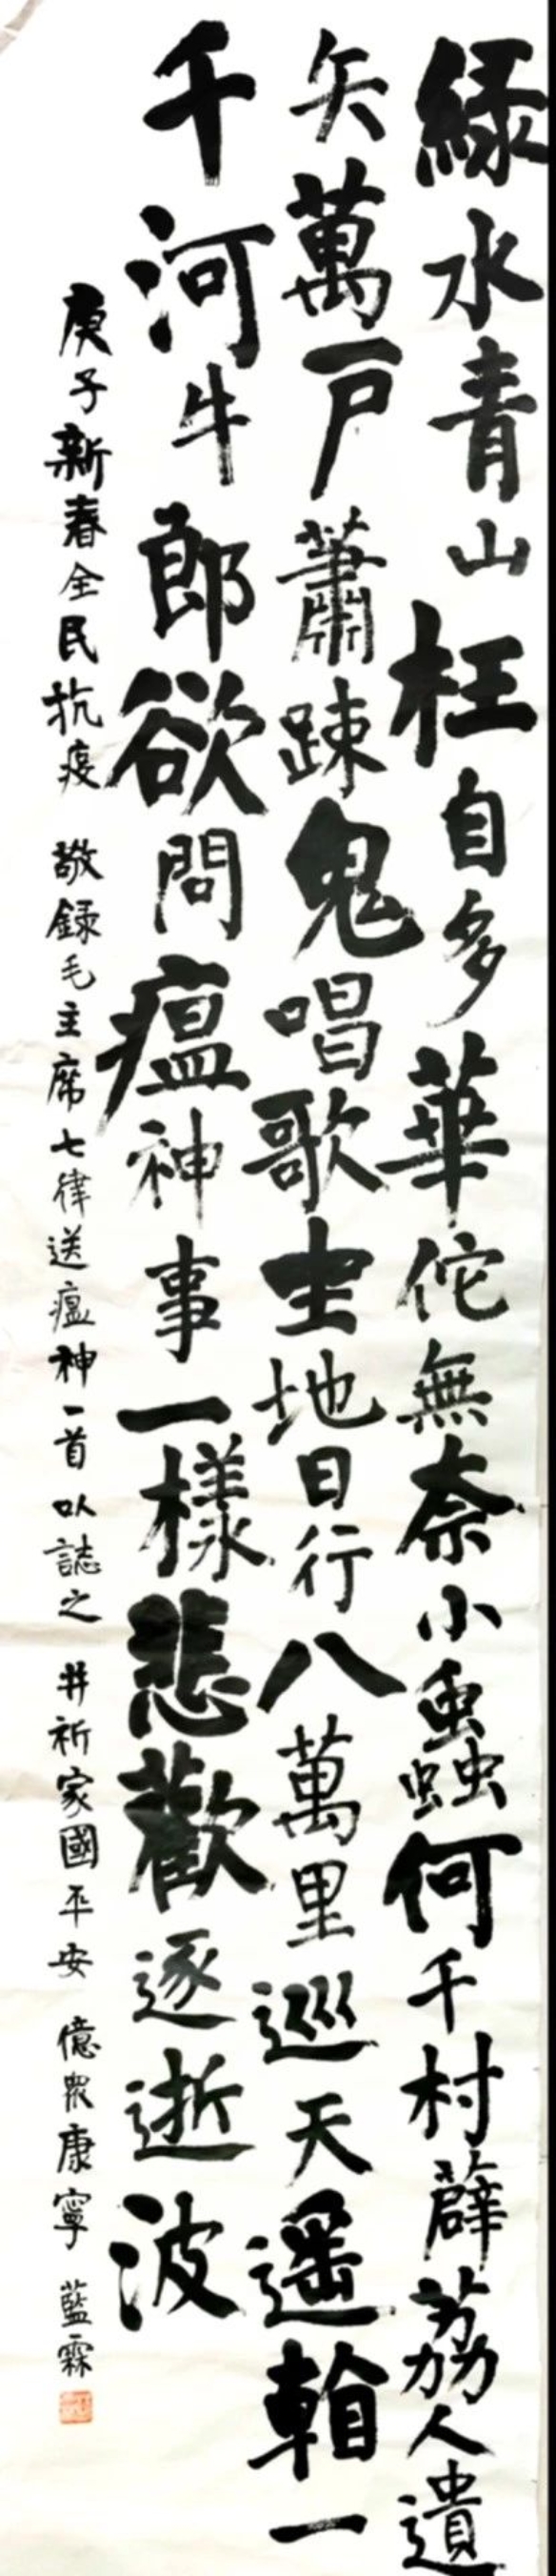 緑水青山枉自多華佗無奈小蟲何千村薜荔人遺
矢萬戶蕭踈鬼唱歌坐地日行八萬里巡天遥看一
千河牛郎欲問瘟神事一樣悲歡逐逝波
庚子新春全民抗疫 敬録毛主席七律送瘟神一首以誌之 并祈家國平安 億眾康寧 藍霖